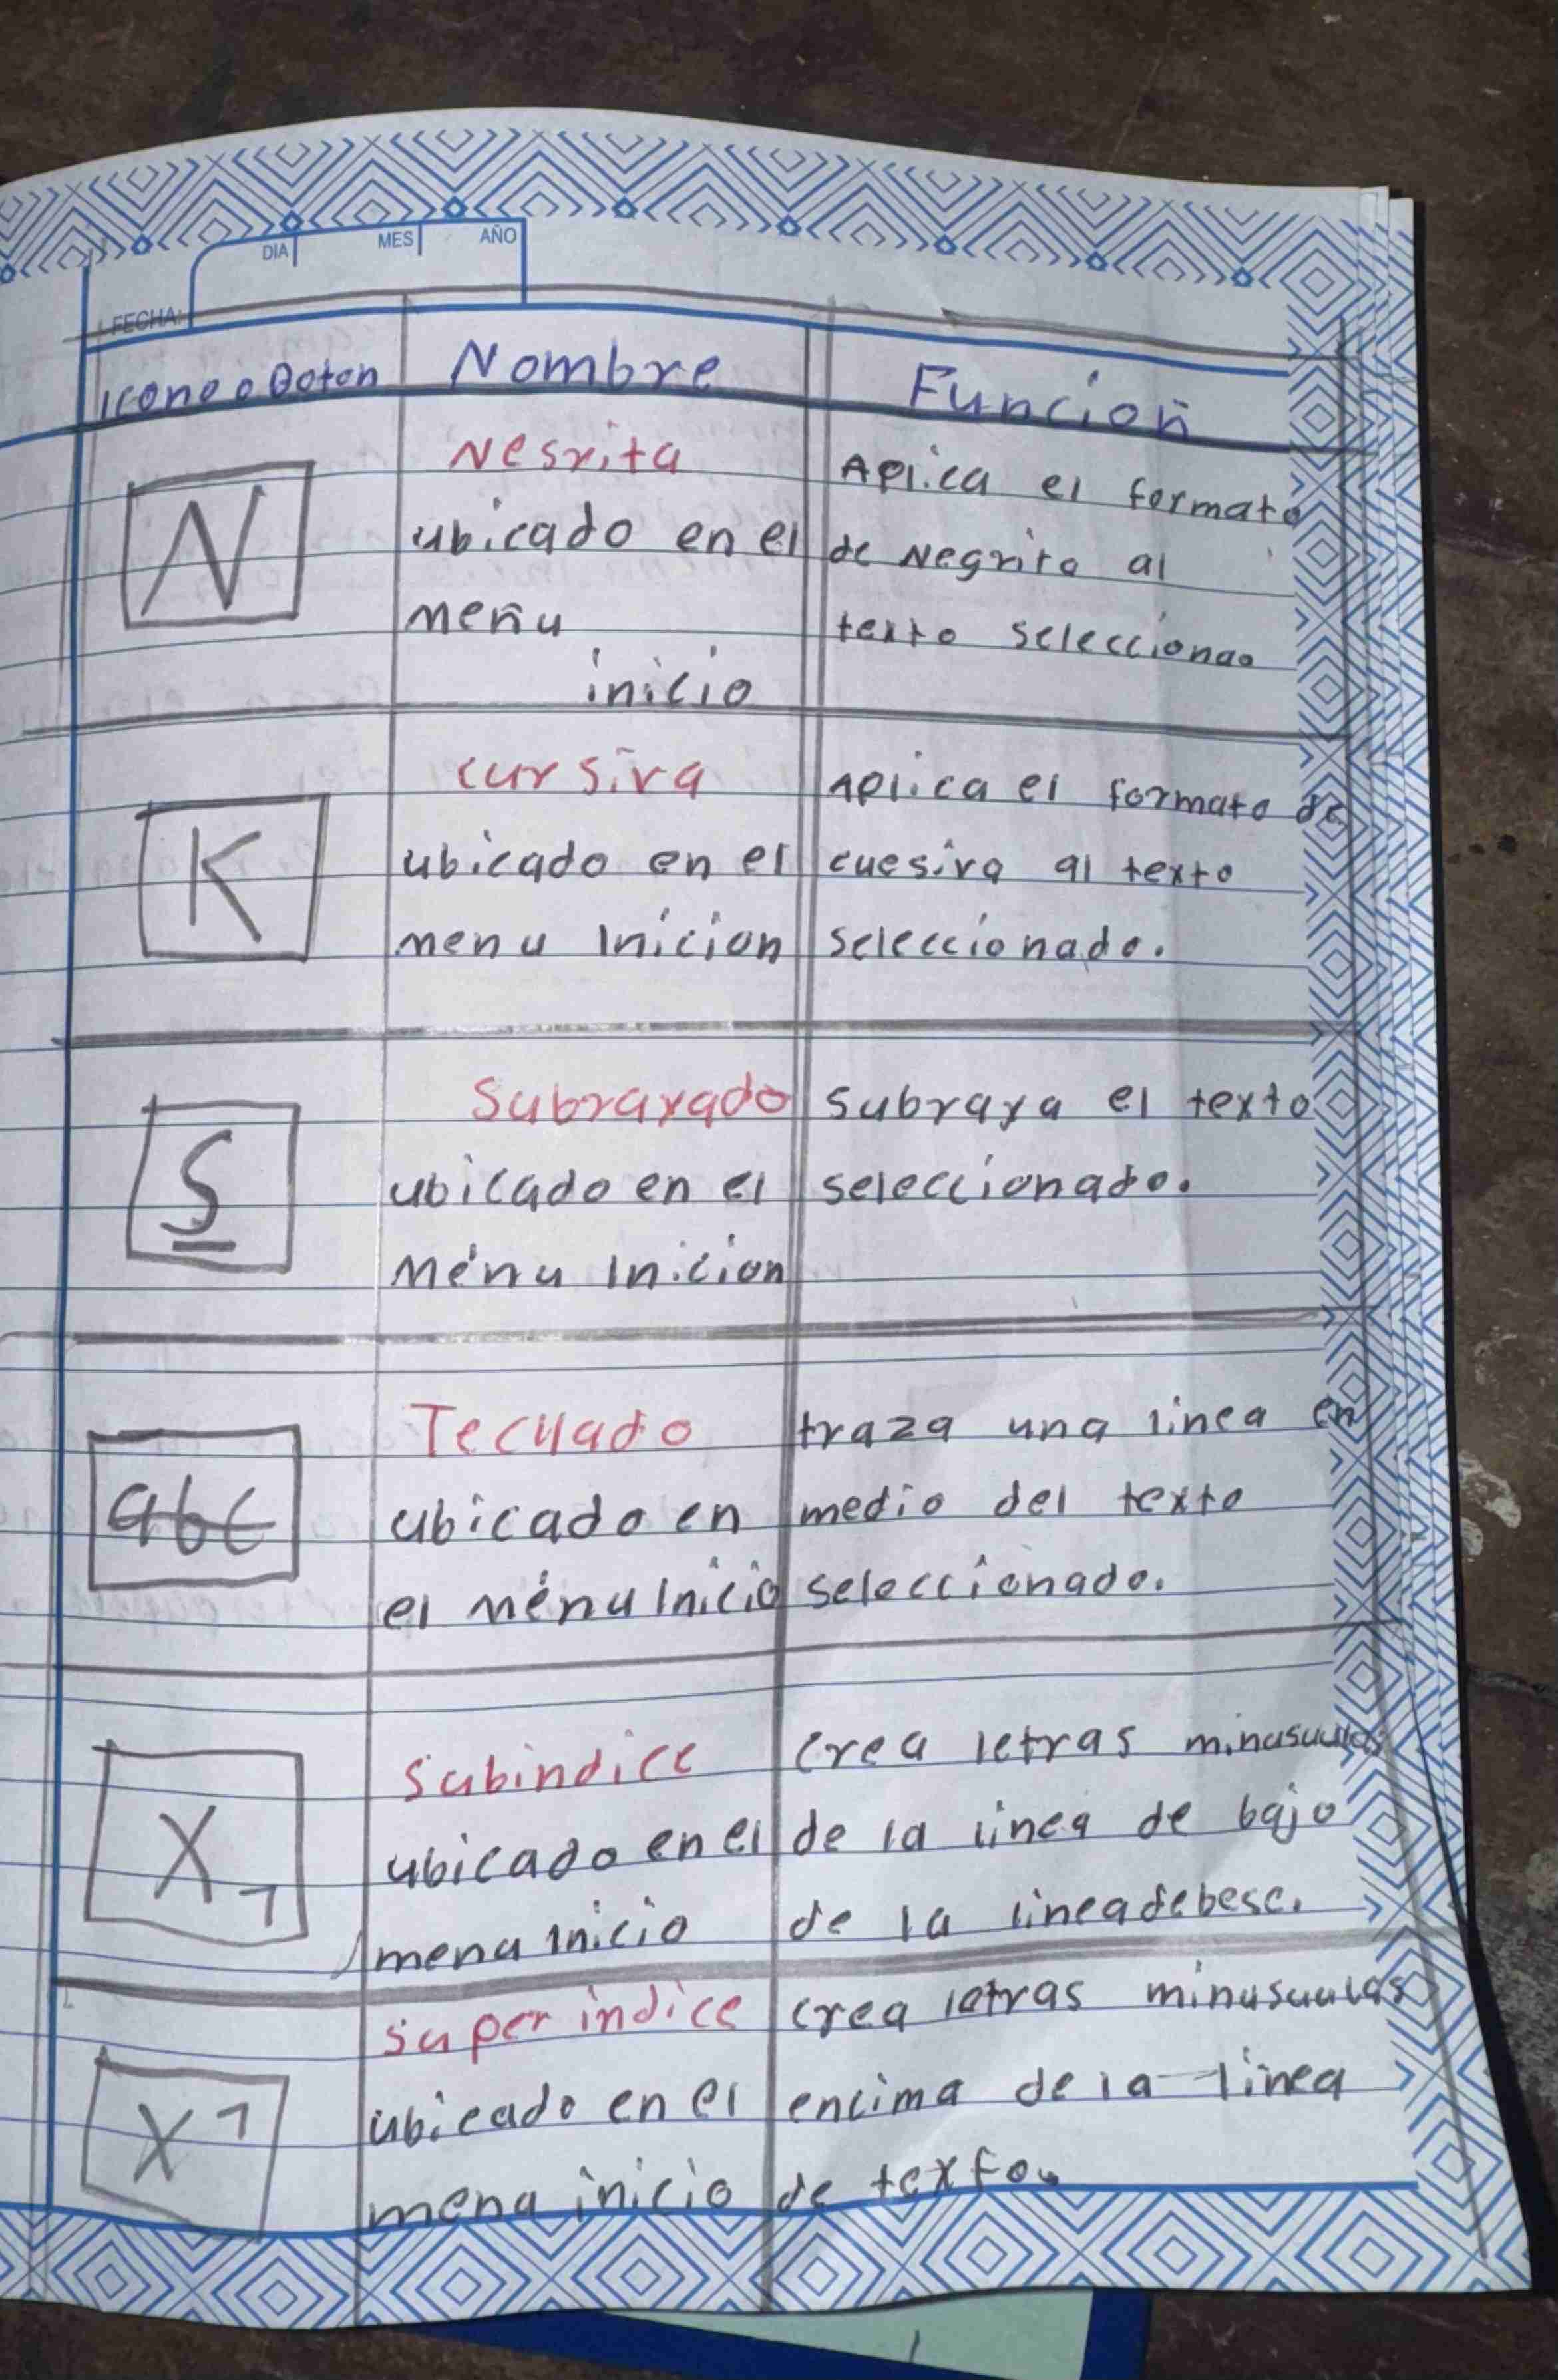 DIA MES AÑO
FECHA:
Icono o Boton Nombre Función
N
Negrita
ubicado en el
menu
inicio
Aplica el formato
de Negrita al
texto seleccionao
K
cursiva
ubicado en el
menu Inicion
Aplica el formato de
cuesiva al texto
seleccionado.
S
Subrayado
ubicado en el
Ménu Inicion
Subraya el texto
seleccionado.
abc
Techado
ubicado en
el ménu Inicio
traza una linea en
medio del texto
seleccionado.
X1
Subindice
ubicado en el
menu inicio
Crea letras minusculas
de la linea de bajo
de la linea de bese.
X1
Super indice
ubicado en el
menu inicio
crea letras minusculas
encima de la linea
de texto.